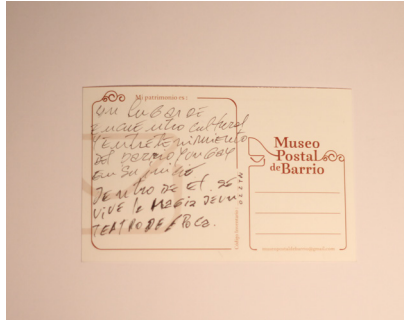 Mi patrimonio es:
un lugar de
encuentro cultural
y entretenimiento
del barrio Yungay
en su inicio
Dentro de él se
vive la magia de un
teatro de época.
Museo
Postal
de Barrio